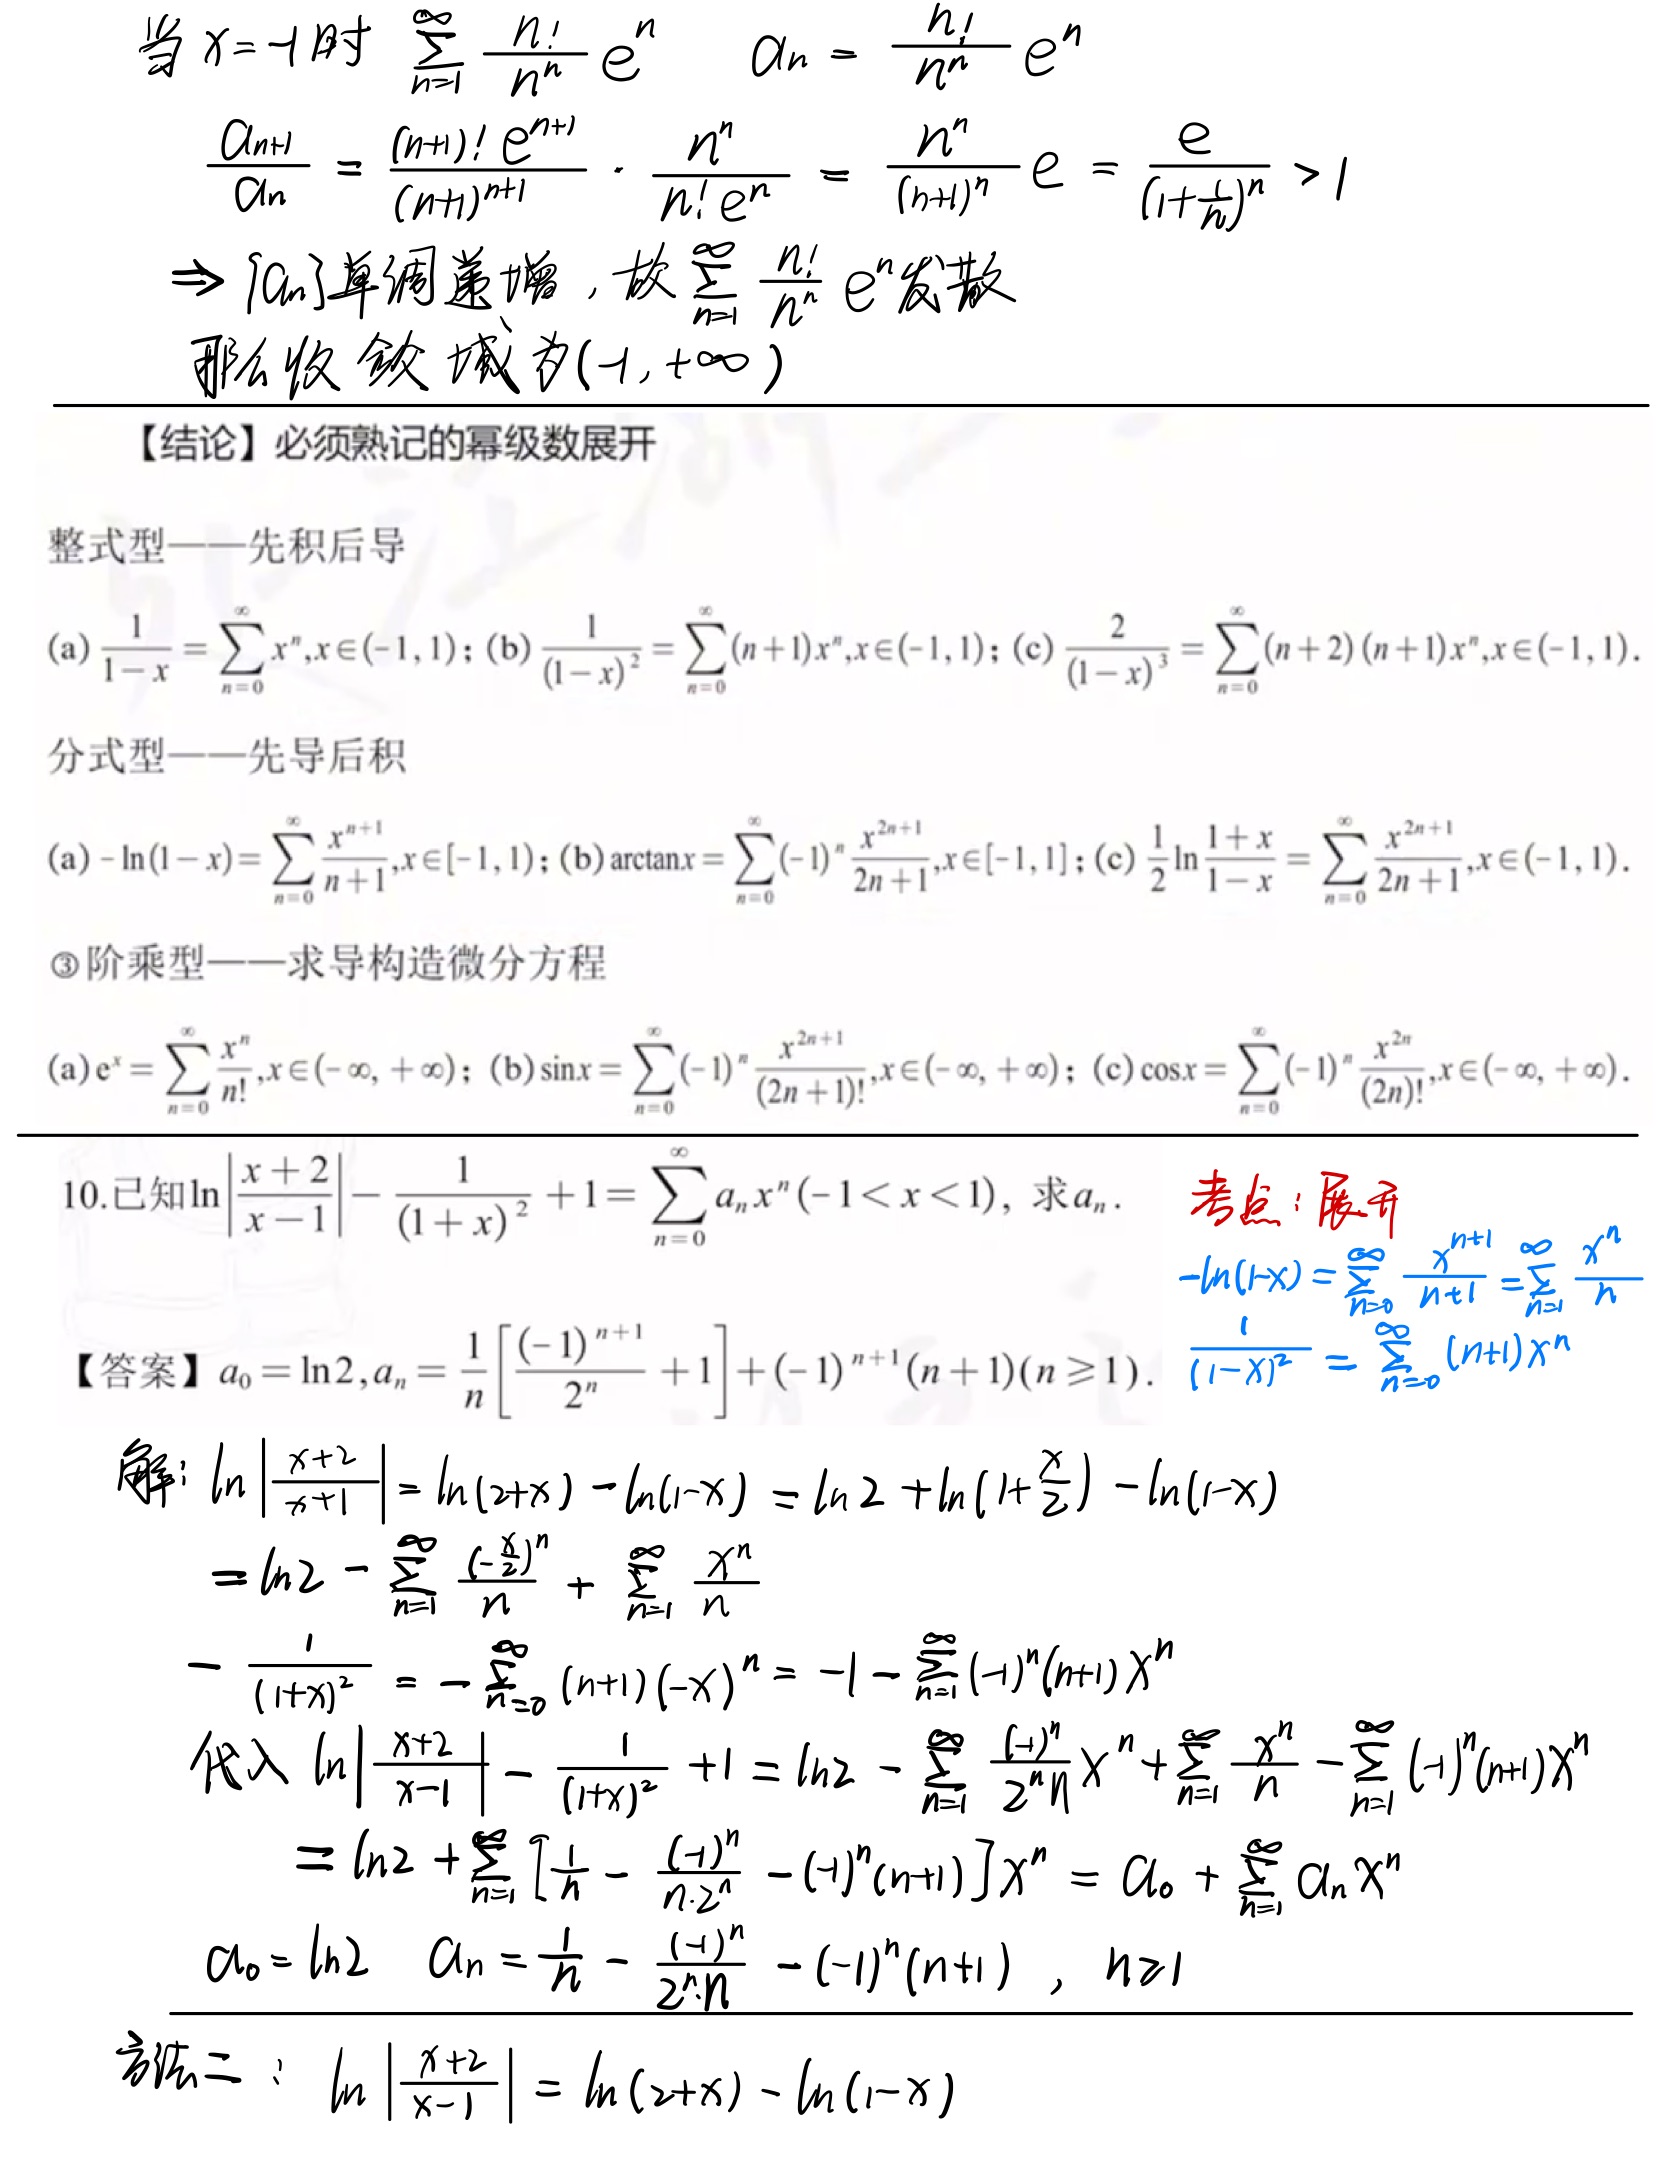 当 x=-1时 $\sum_{n=1}^{\infty} \frac{n!}{n^n} e^n$ $a_n = \frac{n!}{n^n} e^n$
$\frac{a_{n+1}}{a_n} = \frac{(n+1)! e^{n+1}}{(n+1)^{n+1}} \cdot \frac{n^n}{n! e^n} = \frac{n^n}{(n+1)^n} e = \frac{e}{(1+\frac{1}{n})^n} > 1$
⇒ {a_n}单调递增,故 $\sum_{n=1}^{\infty} \frac{n!}{n^n} e^n$ 发散
那么收敛域为(-1,+∞)
【结论】必须熟记的幂级数展开
整式型——先积后导
(a) $\frac{1}{1-x} = \sum_{n=0}^{\infty} x^n$,x∈(-1,1); (b) $\frac{1}{(1-x)^2} = \sum_{n=0}^{\infty} (n+1)x^n$,x∈(-1,1); (c) $\frac{2}{(1-x)^3} = \sum_{n=0}^{\infty} (n+2)(n+1)x^n$,x∈(-1,1).
分式型——先导后积
(a) $-\ln(1-x) = \sum_{n=0}^{\infty} \frac{x^{n+1}}{n+1}$,x∈[-1,1); (b) $\arctan x = \sum_{n=0}^{\infty} (-1)^n \frac{x^{2n+1}}{2n+1}$,x∈[-1,1]; (c) $\frac{1}{2}\ln\frac{1+x}{1-x} = \sum_{n=0}^{\infty} \frac{x^{2n+1}}{2n+1}$,x∈(-1,1).
③阶乘型——求导构造微分方程
(a) $e^x = \sum_{n=0}^{\infty} \frac{x^n}{n!}$,x∈(-∞,+∞); (b) $\sin x = \sum_{n=0}^{\infty} (-1)^n \frac{x^{2n+1}}{(2n+1)!}$,x∈(-∞,+∞); (c) $\cos x = \sum_{n=0}^{\infty} (-1)^n \frac{x^{2n}}{(2n)!}$,x∈(-∞,+∞).
10.已知 $\ln\left|\frac{x+2}{x-1}\right| - \frac{1}{(1+x)^2} + 1 = \sum_{n=0}^{\infty} a_n x^n (-1<x<1)$, 求 $a_n$.
考点:展开
$-\ln(1-x) = \sum_{n=0}^{\infty} \frac{x^{n+1}}{n+1} = \sum_{n=1}^{\infty} \frac{x^n}{n}$
$\frac{1}{(1-x)^2} = \sum_{n=0}^{\infty} (n+1)x^n$
【答案】$a_0 = \ln 2, a_n = \frac{1}{n}\left[\frac{(-1)^{n+1}}{2^n} + 1\right] + (-1)^{n+1}(n+1)(n \geq 1)$.
解: $\ln\left|\frac{x+2}{x+1}\right| = \ln(2+x) - \ln(1-x) = \ln 2 + \ln(1+\frac{x}{2}) - \ln(1-x)$
$= \ln 2 - \sum_{n=1}^{\infty} \frac{(-\frac{x}{2})^n}{n} + \sum_{n=1}^{\infty} \frac{x^n}{n}$
$-\frac{1}{(1+x)^2} = -\sum_{n=0}^{\infty} (n+1)(-x)^n = -1 - \sum_{n=1}^{\infty} (-1)^n (n+1) x^n$
代入 $\ln\left|\frac{x+2}{x-1}\right| - \frac{1}{(1+x)^2} + 1 = \ln 2 - \sum_{n=1}^{\infty} \frac{(-1)^n}{2^n n} x^n + \sum_{n=1}^{\infty} \frac{x^n}{n} - \sum_{n=1}^{\infty} (-1)^n (n+1) x^n$
$= \ln 2 + \sum_{n=1}^{\infty} \left[\frac{1}{n} - \frac{(-1)^n}{n \cdot 2^n} - (-1)^n (n+1)\right] x^n = a_0 + \sum_{n=1}^{\infty} a_n x^n$
$a_0 = \ln 2$ $a_n = \frac{1}{n} - \frac{(-1)^n}{2^n \cdot n} - (-1)^n (n+1)$ , $n \geq 1$
方法二: $\ln\left|\frac{x+2}{x-1}\right| = \ln(2+x) - \ln(1-x)$